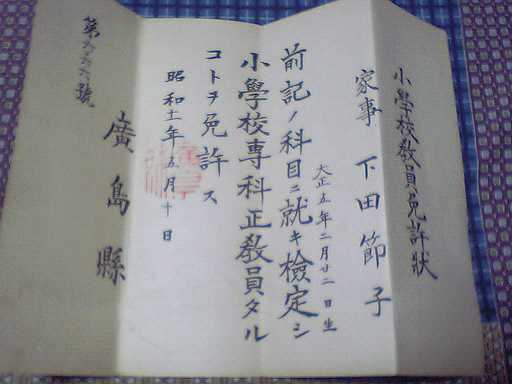 小學校教員免許狀
家事 下田節子
大正五年二月廿二日生
前記ノ科目ニ就キ檢定シ
小學校專科正教員タル
コトヲ免許ス
昭和十一年五月十日
廣島縣